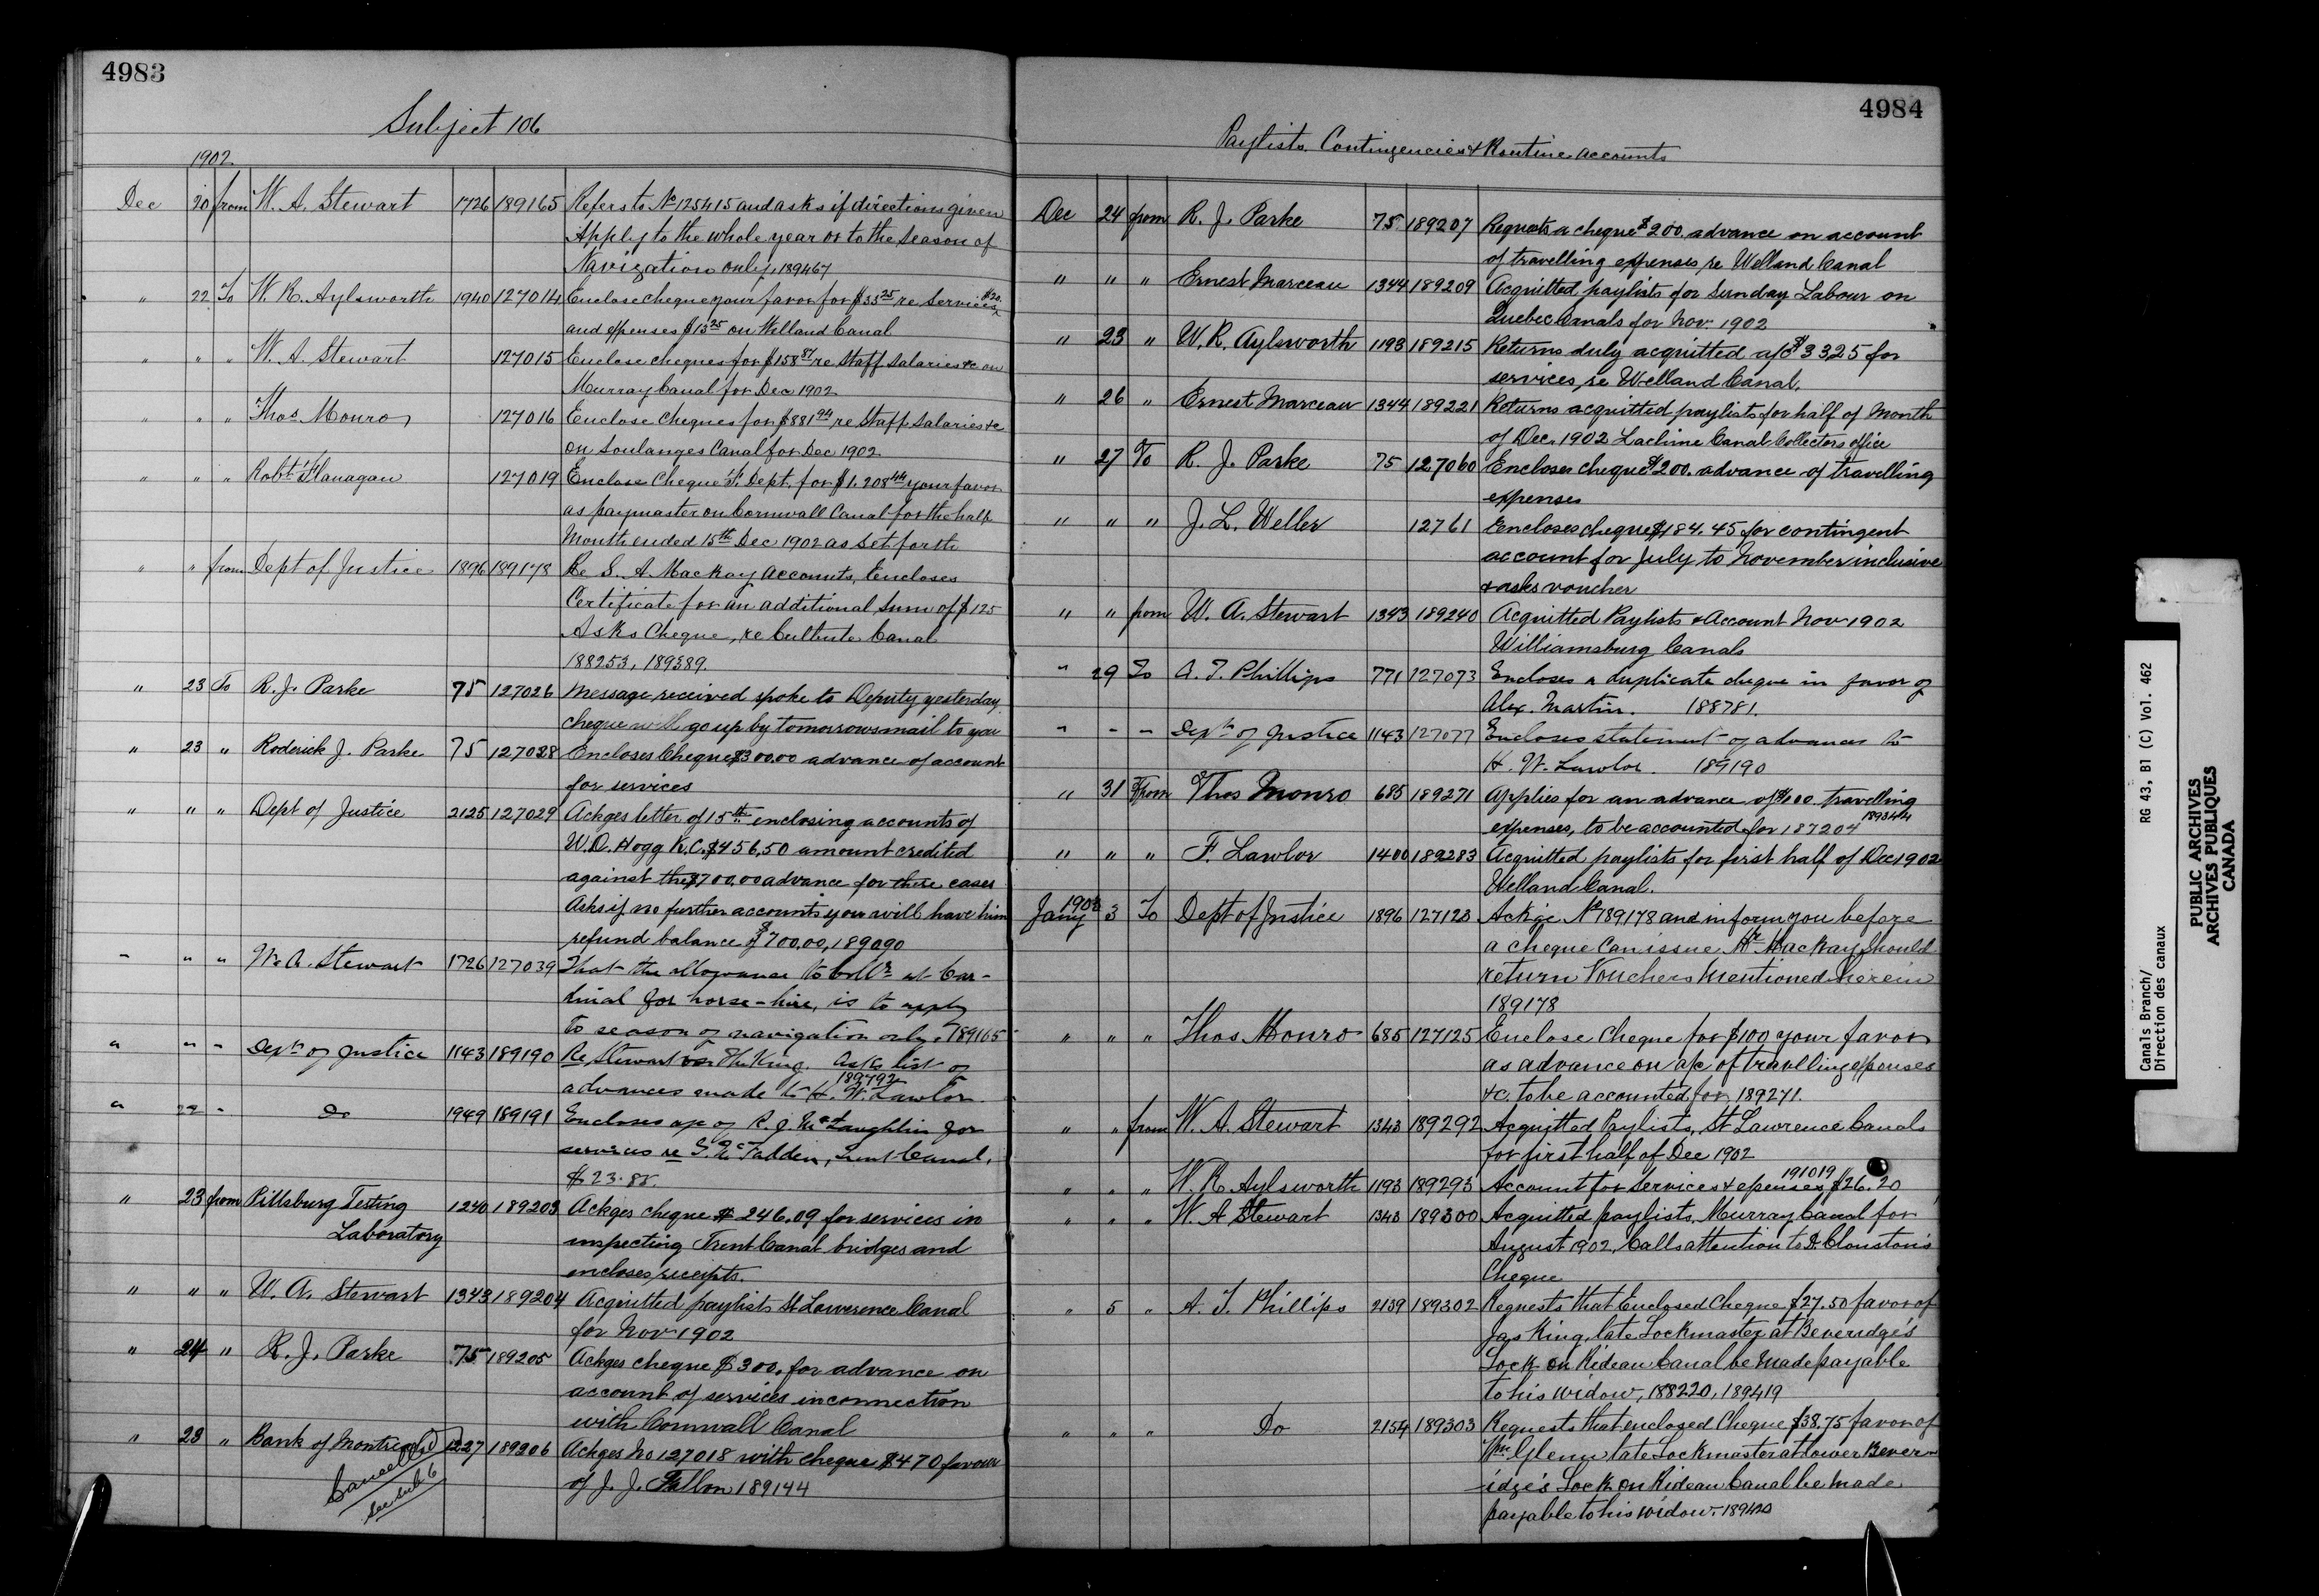 4983
Subject 106
1902
Dec 20 from W. A. Stewart 1726 189165 Refers to No 125415 and asks if directions given
Apply to the whole year or to the Season of
Navigation only, 189467
" 22 To W. R. Aylsworth 1940 127014 Enclose cheque your favor for $33.25 re Services $20.
and expenses $13.25 on Welland Canal
" " " W. A. Stewart 127015 Enclose cheques for $158.87 re Staff Salaries &c on
Murray Canal for Dec 1902
" " " Thos Monro 127016 Enclose Cheques for $881.94 re Staff Salaries &c
on Soulanges Canal for Dec 1902
" " " Robt Flanagan 127019 Enclose Cheque Dept. for $1,208.44 your favor
as paymaster on Cornwall Canal for the half
Month ended 15th Dec 1902 as set forth
" " from Dept of Justice 1896 189178 Re S. A. Mackay Accounts, Encloses
Certificate for an additional sum of $125
Asks Cheque, re Culbute Canal
188253, 189389.
" 23 To R. J. Parke 75 127026 Message received spoke to Deputy yesterday
cheque will go up by tomorrows mail to you
" 23 " Roderick J. Parke 75 127028 Encloses Cheque $300.00 advance of account
for services
" " " Dept of Justice 2125 127029 Ackges letter of 15th enclosing accounts of
W.D. Hogg K.C. $456.50 amount credited
against the $700.00 advance for these cases
Asks if no further accounts you will have him
refund balance of $700.00, 189090
" " " W. A. Stewart 1726 127039 That the allowance to Collr at Car-
dinal for horse-hire, is to apply
to season of navigation only. 189165
" " " Dept of Justice 1143 189190 Re Stewart vs The King. Asks list of
advances made to H. W. Lawlor. 189792
" 22 " Do 1949 189191 Encloses a/c of R. J. McLaughlin for
services re McFadden, Trent Canal,
$23.88.
" 23 from Pittsburg Testing 1240 189203 Ackges cheque $246.09 for services in
Laboratory inspecting Trent Canal bridges and
encloses receipts.
" " " W. A. Stewart 1343 189204 Acquitted paylists St Lawrence Canal
for Nov 1902
" 24 " R. J. Parke 75 189205 Ackges cheque $300. for advance on
account of services in connection
with Cornwall Canal
" 23 " Bank of Montreal 1227 189206 Ackges No 127018 with cheque $470 favour
of J. J. Fallon 189144
Cancelled
4984
Paylists Contingencies & Routine accounts
Dec 24 from R. J. Parke 75 189207 Requests a cheque $200. advance on account
of travelling expenses re Welland Canal
" " " Ernest Marceau 1344 189209 Acquitted paylists for Sunday Labour on
Quebec Canals for Nov. 1902
" 23 " W. R. Aylsworth 1193 189215 Returns duly acquitted a/c $33.25 for
services, re Welland Canal.
" 26 " Ernest Marceau 1344 189221 Returns acquitted paylists for half of Month
of Dec. 1902 Lachine Canal Collectors office
" 27 To R. J. Parke 75 127060 Encloses cheque $200. advance of travelling
expenses
" " " J. L. Weller 12761 Encloses cheque $184.45 for contingent
account for July to November inclusive
& asks voucher
" " from W. A. Stewart 1343 189240 Acquitted Paylists & Account Nov 1902
Williamsburg Canals
" 29 To A. T. Phillips 771 127073 Encloses a duplicate cheque in favor of
Alex. Martin. 188781.
" " " Dept of Justice 1143 127077 Encloses statement of advances to
H. W. Lawlor. 189190
" 31 From Thos Monro 685 189271 Applies for an advance of $100. travelling
expenses, to be accounted for 187204 189344
" " " F. Lawlor 1400 189283 Acquitted paylists for first half of Dec 1902
Welland Canal.
1903
Jany 3 To Dept of Justice 1896 127123 Ackge No 189178 and inform you before
a cheque can issue Mr Mackay should
return Vouchers mentioned herein
189178
" " " Thos Monro 685 127125 Enclose Cheque for $100 your favor
as advance on a/c of travelling expenses
&c. to be accounted for, 189271.
" " from W. A. Stewart 1343 189292 Acquitted Paylists, St Lawrence Canals
for first half of Dec 1902
" " " W. R. Aylsworth 1193 189293 Account for Services & expenses $26.20 191019
" " " W. A Stewart 1343 189300 Acquitted paylists, Murray Canal for
August 1902, Calls attention to D. Clouston's
Cheque
" 5 " A. T. Phillips 2139 189302 Requests that Enclosed Cheque $27.50 favor of
Jas King, late Lockmaster at Beveridge's
Lock on Rideau Canal be made payable
to his widow, 188220, 189419
" " " Do 2154 189303 Requests that enclosed Cheque $38.75 favor of
Wm Glenn late Lockmaster at lower Bever
idge's Lock on Rideau Canal be made
payable to his widow. 189420
Canals Branch/ RG 43, B1 (C) Vol. 462
Direction des canaux
PUBLIC ARCHIVES
ARCHIVES PUBLIQUES
CANADA